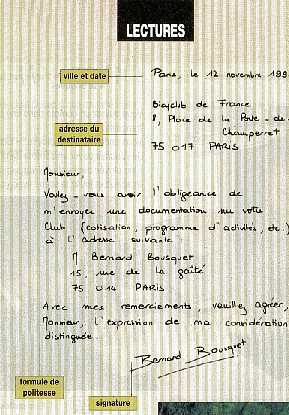 LECTURES
ville et date
Paris, le 12 novembre 199
Bicyclub de France
adresse du destinataire
8, Place de la Porte-de-
Champerret
75 017 PARIS
Monsieur,
Voulez-vous avoir l'obligeance de
m'envoyer une documentation sur votre
Club (cotisation, programme d'activités, etc.)
à l'adresse suivante
M Bernard Bousquet
15, rue de la gaîté
75 014 PARIS
Avec mes remerciements, veuillez agréer,
Monsieur, l'expression de ma considération
distinguée.
Bernard Bousquet
formule de politesse
signature